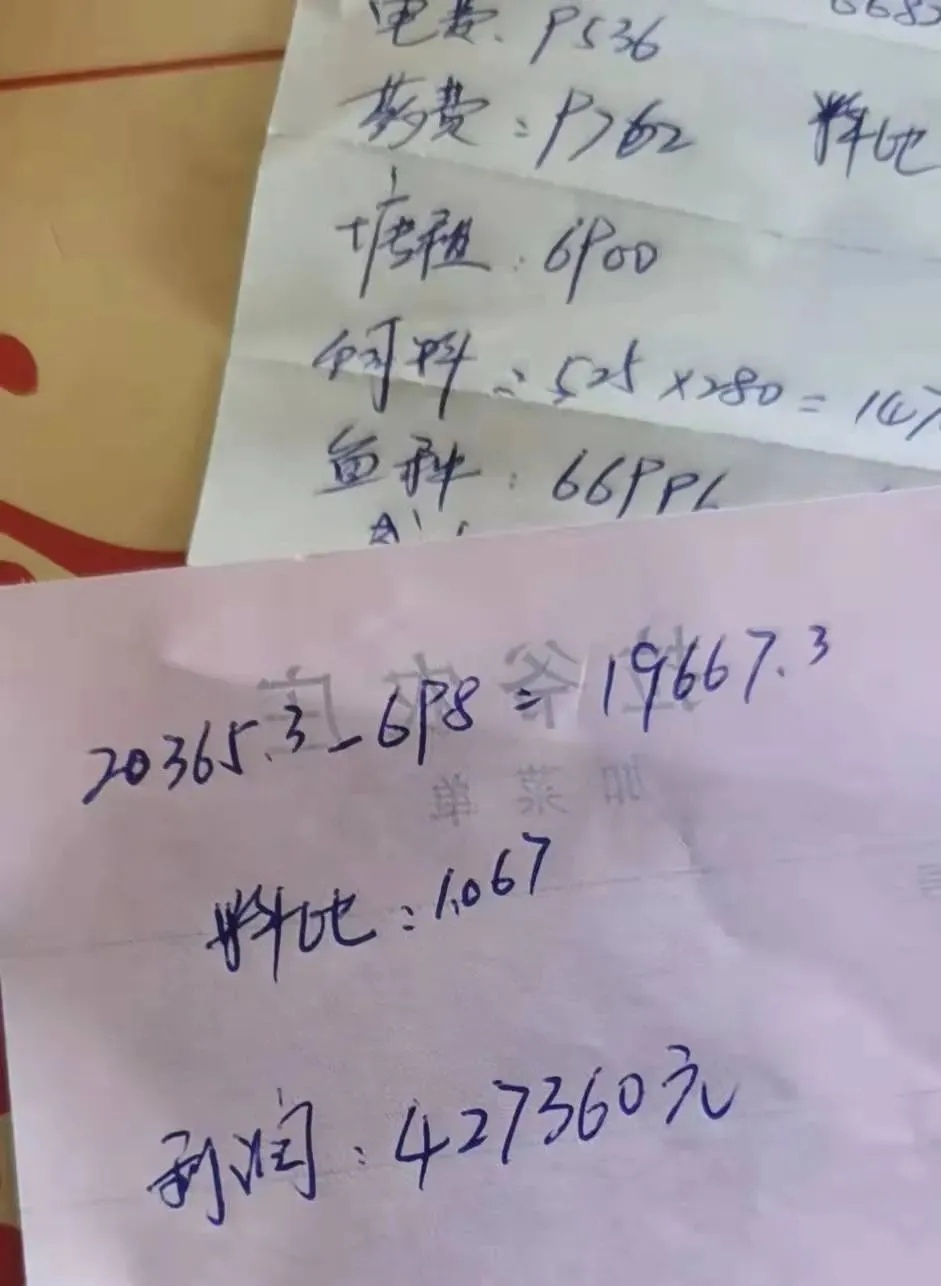 电费:9536
药费:9762 料比
塘租:6900
饲料:525×280=147
鱼种:66996
20365.3-698=19667.3
加菜单
料比:1.067
利润:427360元